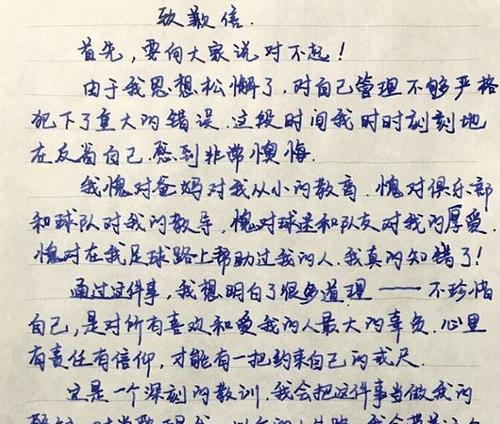 致歉信.
首先,要向大家说对不起!
由于我思想松懈了,对自己管理不够严格
犯下了重大的错误.这段时间我时时刻刻地
在反省自己.感到非常懊悔.
我愧对爸妈对我从小的教育.愧对俱乐部
和球队对我的教导,愧对球迷和队友对我的厚爱.
愧对在我足球路上帮助过我的人.我真的知错了!
通过这件事,我想明白了很多道理——不珍惜
自己,是对所有喜欢和爱我的人最大的辜负.心里
有责任有信仰,才能有一把约束自己的戒尺.
这是一个深刻的教训.我会把这件事当做我的